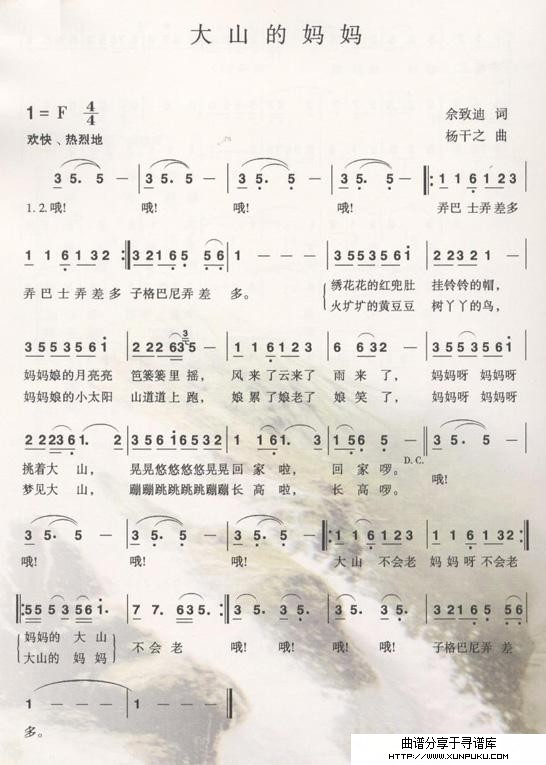 大山的妈妈
1=F 4/4
佘致迪 词
欢快、热烈地
杨干之 曲
3 5. 5 — | 3 5. 5 — | 3 5. 5 — | 3 5. 5 — |: 1 1 6 1 2 3
1.2.哦! 哦! 哦! 哦! 弄巴士弄差多
1 1 6 1 3 2 :| 3 2 1 6 5 5 6 | 1 — — — | 3 5 5 3 5 6 i | 2 2 3 2 1 —
弄巴士弄差多 子格巴尼弄差 多。 绣花花的红兜肚 挂铃铃的帽,
火圹圹的黄豆豆 树丫丫的鸟,
3 5 5 3 5 6 i | 2 2 2 6 3 5 — | 1 1 6 1 2 3 | 6 6 3 2 — | 3 5 5 3 5 6 i
妈妈娘的月亮亮 笆篓篓里摇, 风来了云来了 雨来了, 妈妈呀 妈妈呀
妈妈娘的小太阳 山道道上跑, 娘累了娘老了 娘笑了, 妈妈呀 妈妈呀
2 2 2 3 6 1. 2 | 3 5 6 i 6 5 3 2 | 1 1 6 1. 3 | 1 5 6 5 — D.C. || 3 5. 5 —
挑着大山, 晃晃悠悠悠悠晃晃 回家啦, 回家啰。 哦!
梦见大山, 蹦蹦跳跳跳跳蹦蹦 长高啦, 长高啰。
3 5. 5 — | 3 5. 5 — | 3 5. 5 — |: 1 1 6 1 2 3 | 1 1 6 1 3 2 :|
哦! 哦! 哦! 大山 不会老 妈妈呀不会老
|: 5 5 5 3 5 6 i. | 7 7. 6 3 5. :| 3 5. 3 5. | 3 5. 3 5. | 3 2 1 6 5 5 6
妈妈的 大山 不会老 哦! 哦! 哦! 哦! 子格巴尼弄差
大山的 妈妈
1 — — — | 1 — — — ||
多。
曲谱分享于寻谱库
HTTP://WWW.XUNPUKU.COM